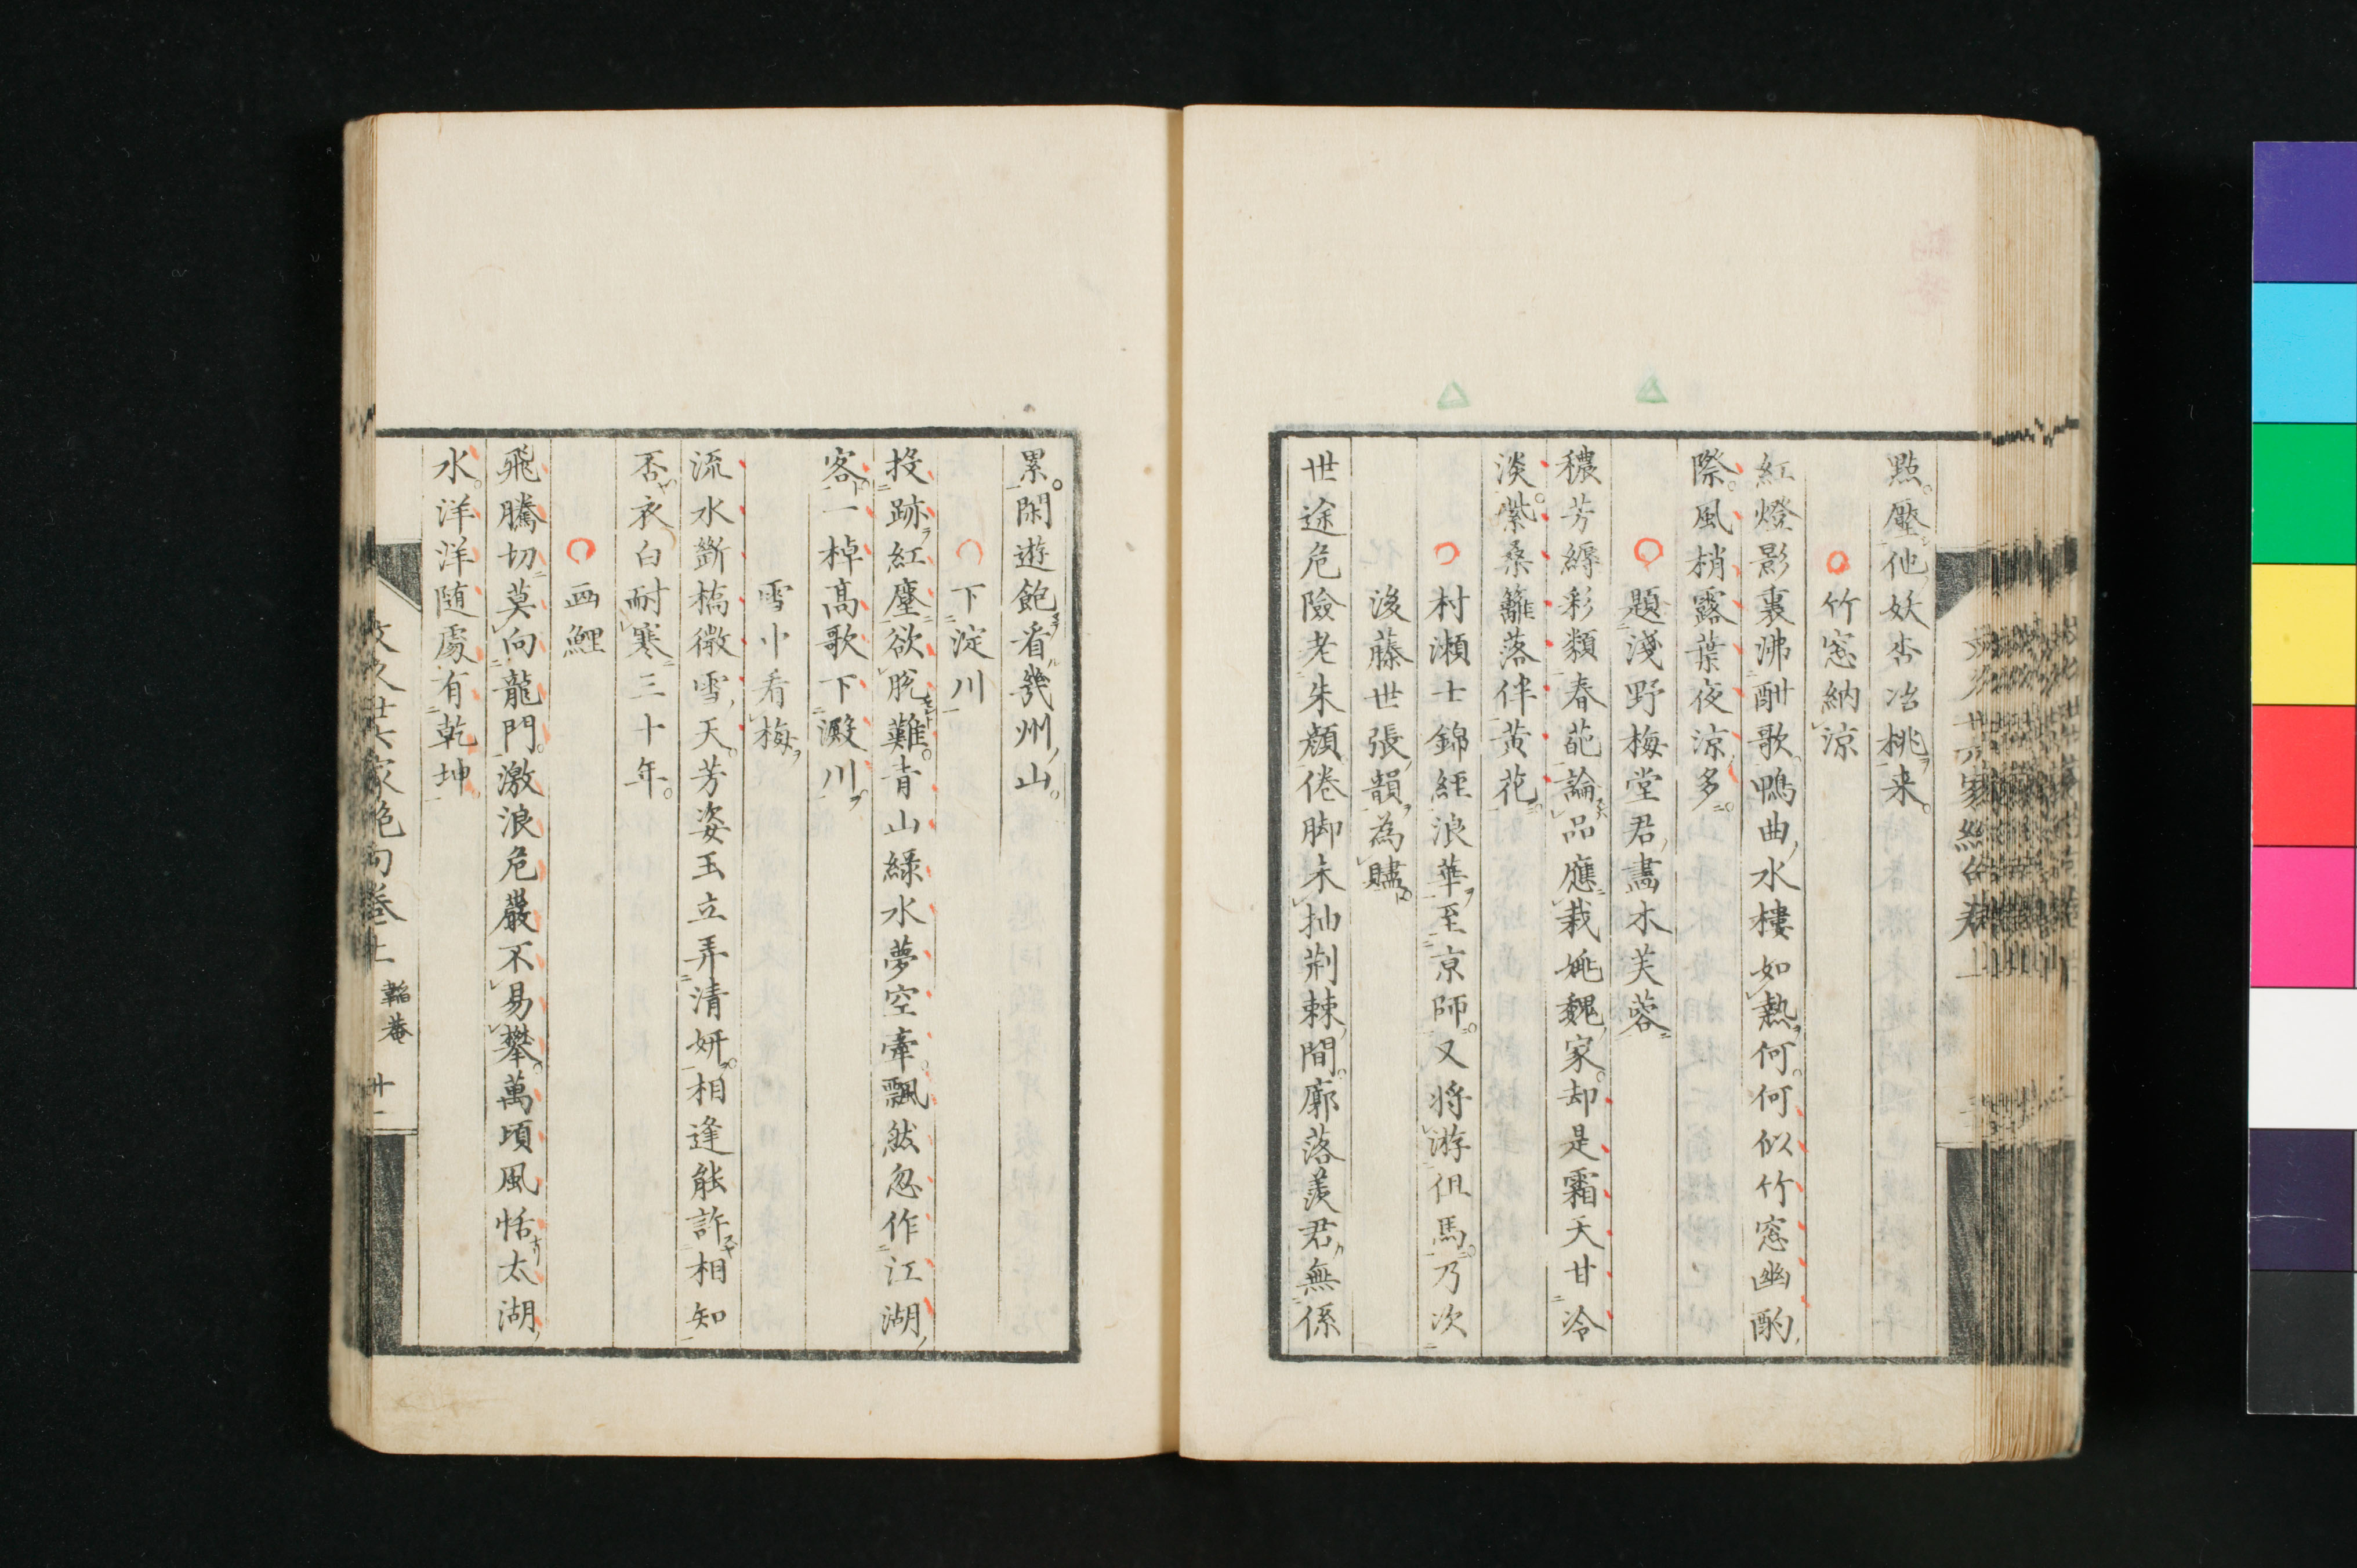 點壓他妖杏冶桃来
竹窓納涼
紅燈影裏沸酣歌鴨曲水樓如熱何何似竹窓幽酌
際風梢露葉夜涼多
題淺野梅堂君畵木芙蓉
穠芳縟彩類春葩論品應栽姚魏家却是霜天甘冷
淡紫桑籬落伴黃花
村瀬士錦經浪華至京師又将游但馬乃次
後藤世張韻為贐
世途危險老朱顔倦脚未抽荆棘間廓落羨君無係
累閑遊飽看幾州山
下淀川
投跡紅塵欲脱難青山緑水夢空牽飄然忽作江湖
客一棹髙歌下澱川
雪中看梅
流水斷橋微雪天芳姿玉立弄清妍相逢能許相知
否衣白耐寒三十年
画鯉
飛騰切莫向龍門激浪危巖不易攀萬頃風恬太湖
水洋洋随處有乾坤
家絶句卷上 韜菴 廿一